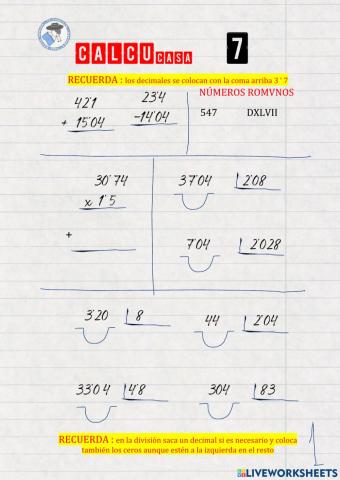 CALCU CASA 7
RECUERDA : los decimales se colocan con la coma arriba 3 ' 7
NÚMEROS ROMVNOS
42'1 23'4
+ 15'04 -14'04
547 DXLVII
30'74 37'04 2'08
x 1'5
+
7'04 2'028
3'20 8 44 2'04
33'04 4'8 304 83
RECUERDA : en la división saca un decimal si es necesario y coloca
también los ceros aunque estén a la izquierda en el resto
1
LIVEWORKSHEETS